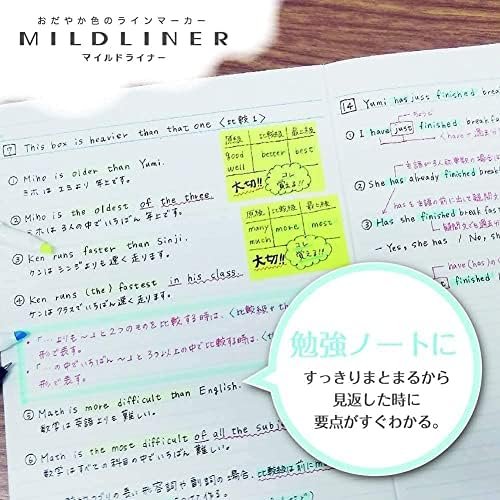 おだやか色のラインマーカー
MILDLINER
マイルドライナー
7 This box is heavier than that one 〈比較1〉
① Miho is older than Yumi.
ミホはユミより年上です。
② Miho is the oldest of the three.
ミホは3人の中でいちばん年上です。
③ Ken runs faster than Sinji.
ケンはシンジよりも速く走ります。
④ Ken runs (the) fastest in his class.
ケンはクラスでいちばん速く走ります。
・「…よりも〜」と2つのものを比較する時は、〈比較級+th
形で表す。
・「…の中でいちばん〜」と3つ以上の中で比較する時は、〈the
形で表す。
⑤ Math is more difficult than English.
数学は英語よりも難しい。
⑥ Math is the most difficult of all the subj
数学はすべての科目の中でいちばん難しい。
つづりの長い形容詞や副詞の場合、比較級は前にm
原級 比較級 最上級
good
well better best
大切!! コレ覚える!!
原級 比較級 最上級
many
much more most
大切!! コレ覚える!!
14 Yumi has just finished breakf
ちょうど
① I have just finished breakf
② She has already finished break
③ Has she finished break
- Yes, she has / No, sh
have(has)
finished
勉強ノートに
すっきりまとまるから
見返した時に
要点がすぐわかる。